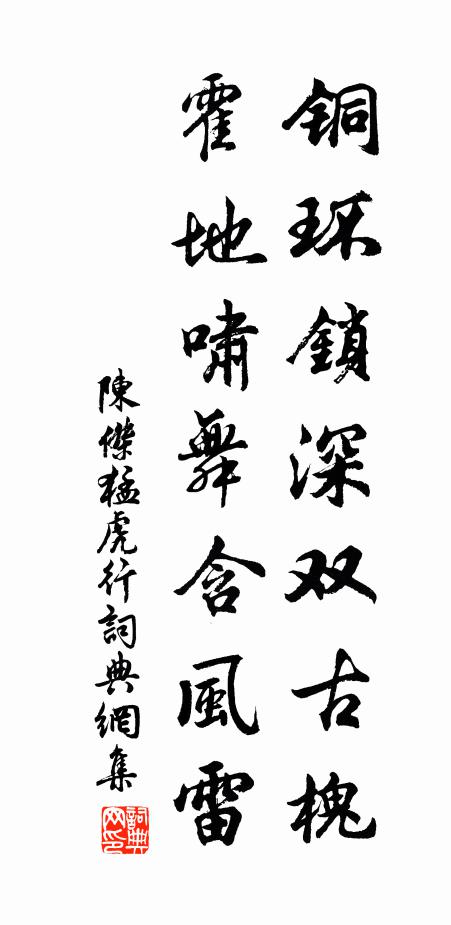 铜环鎖深双古槐
霍地嘯舞含風雷
陳傑猛虎行詞典網集
詞典網印